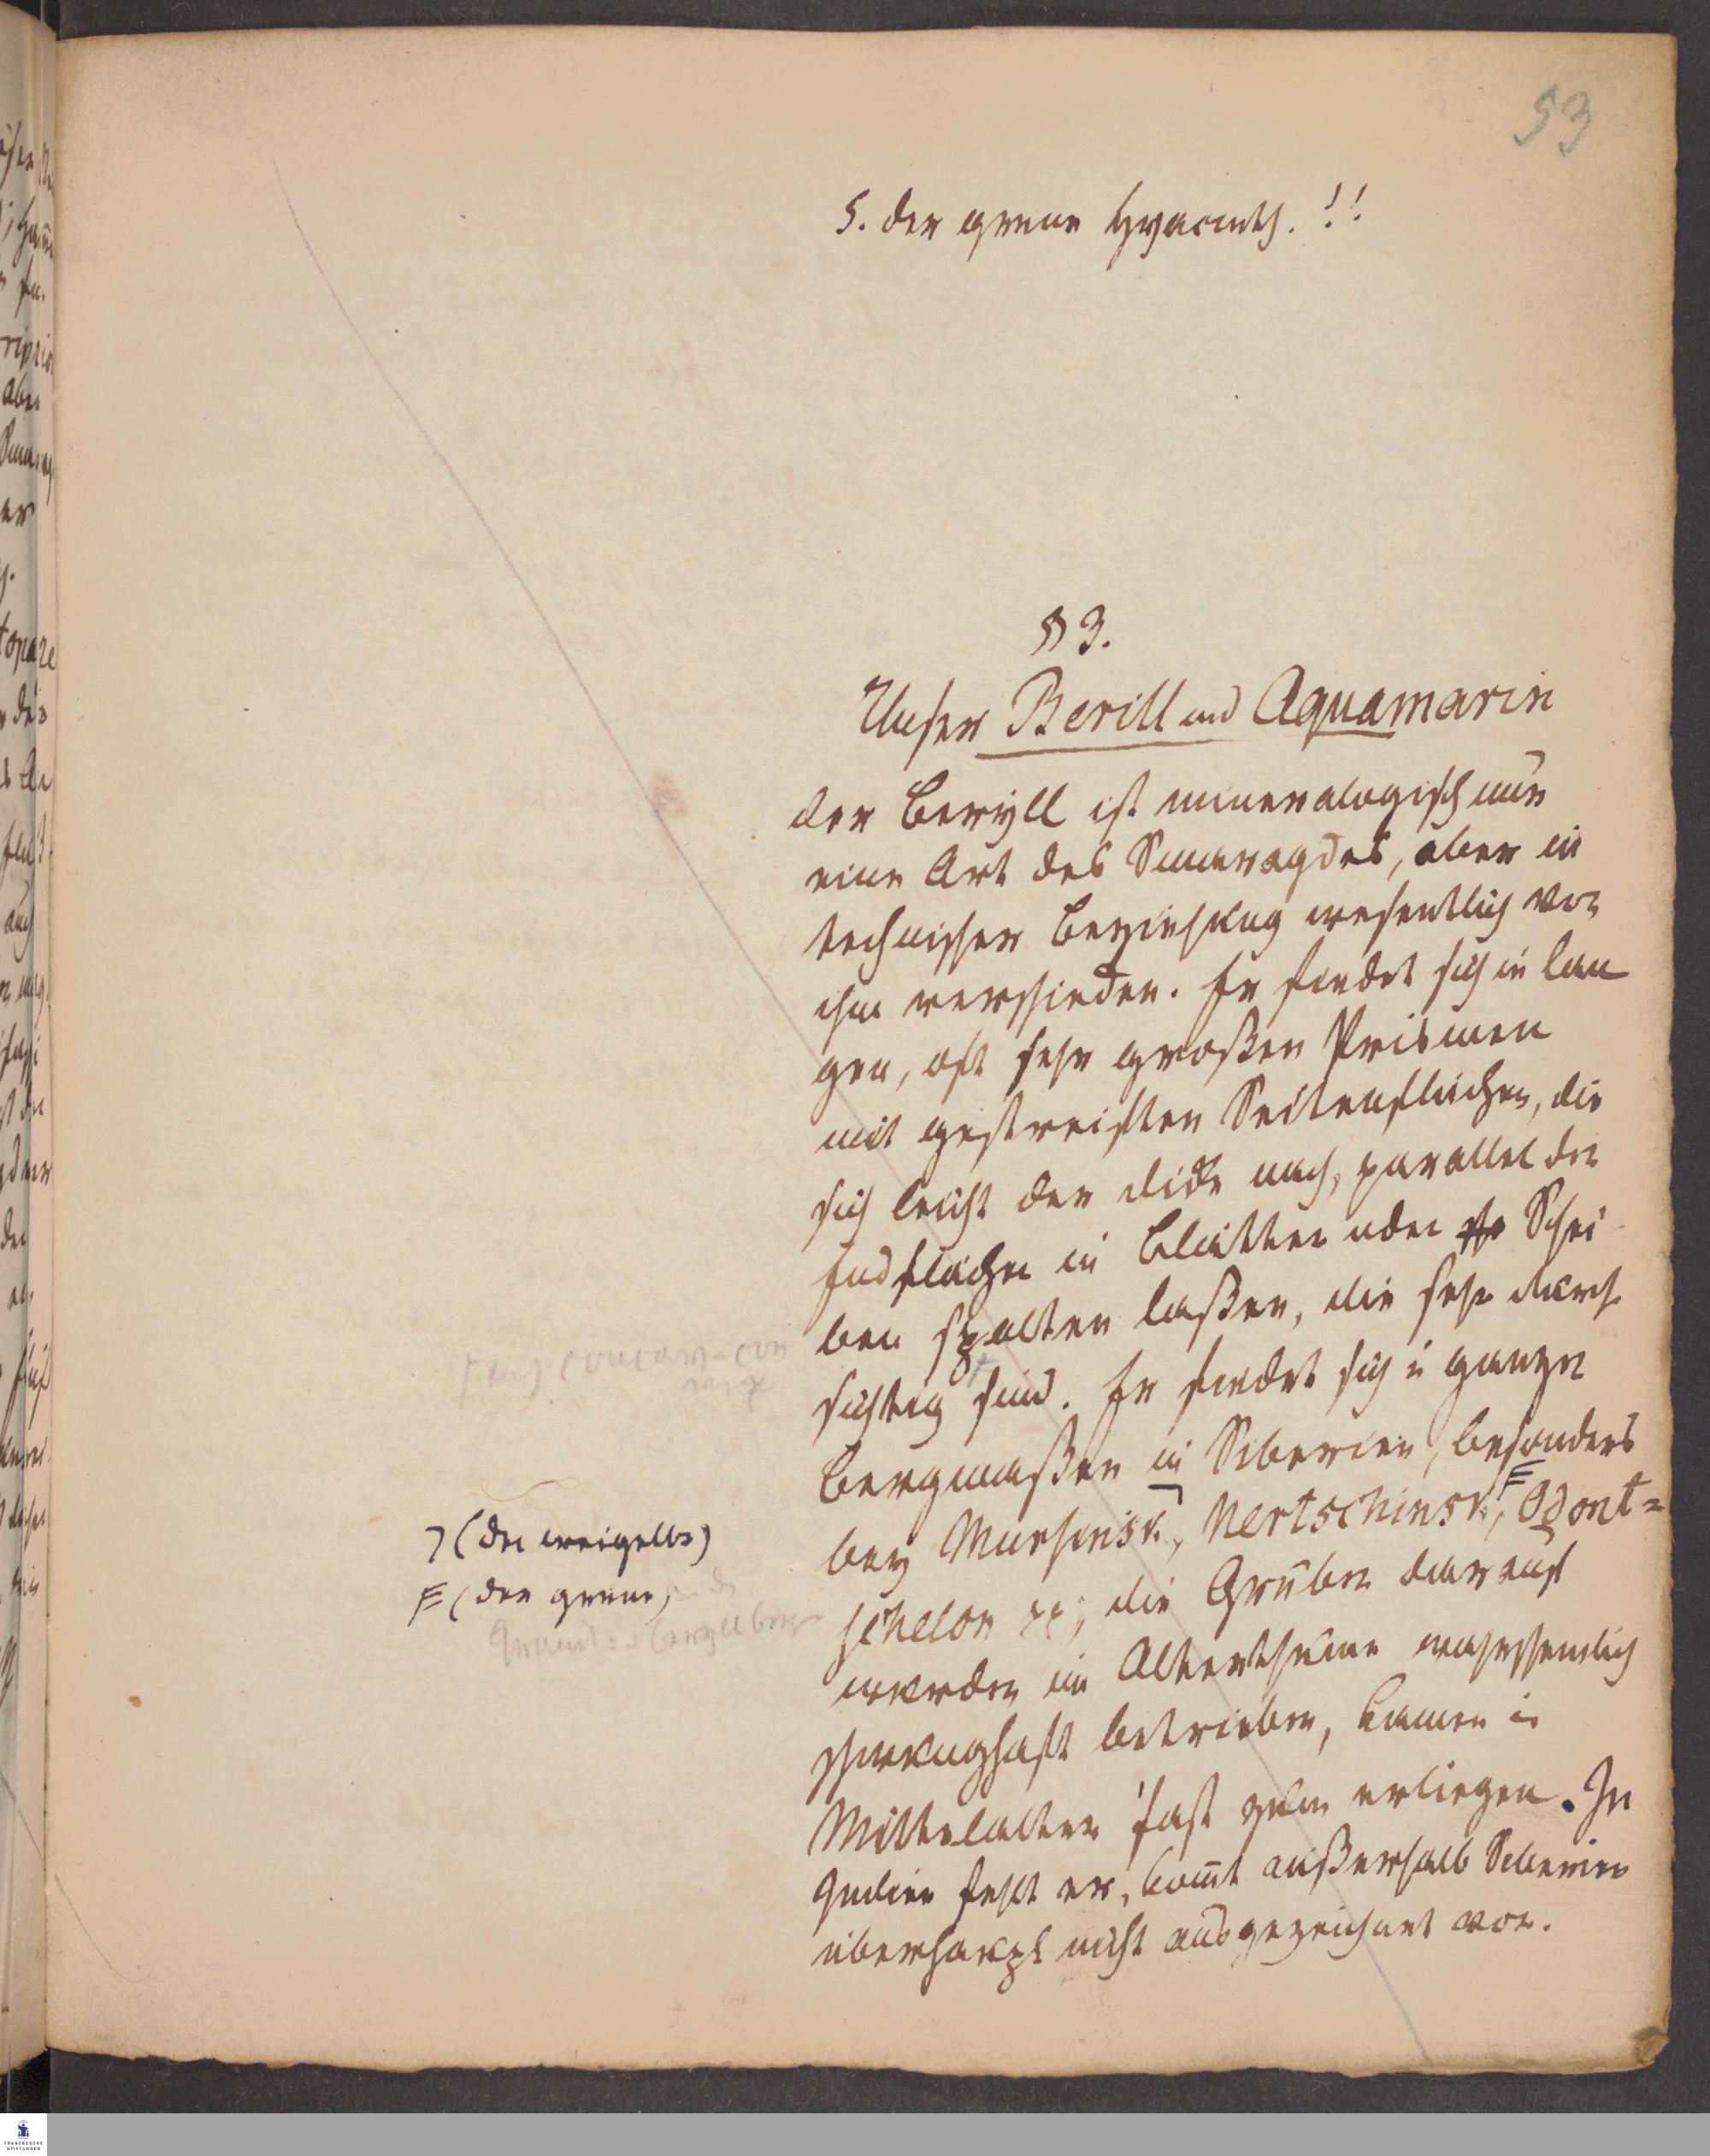 53
5. der grune Hyacinth. !!
§ 3.
Unser Berill und Aquamarin
der Beryll ist mineralogisch nur
eine Art des Smaragdes, aber in
technischer Beziehung wesentlich von
ihm verschieden. Er findet sich in lan
gen, oft sehr großen Prismen
mit gestreiften Seitenflächen, die
sich leicht der dicke nach, parallel den
Endflächen in Blätter oder Schei
ben spalten laßen, die sehr durch
sichtig sind. Er findet sich in ganzen
Bergmaßen in Siberien, besonders
bey Mursinsk, Nertschinsk, Odont=
schelon pp; die Gruben darauf
wurden im Alterthume wahrscheinlich
schwunghaft betrieben, kamen im
Mittelalter fast zum erliegen. In
Indien fehlt er, kom̅t außerhalb Siberien
überhaupt nicht ausgezeichnet vor.
auch concav-con
vexe
(der weigelbe)
(der grune)
FRANCKESCHE
STIFTUNGEN